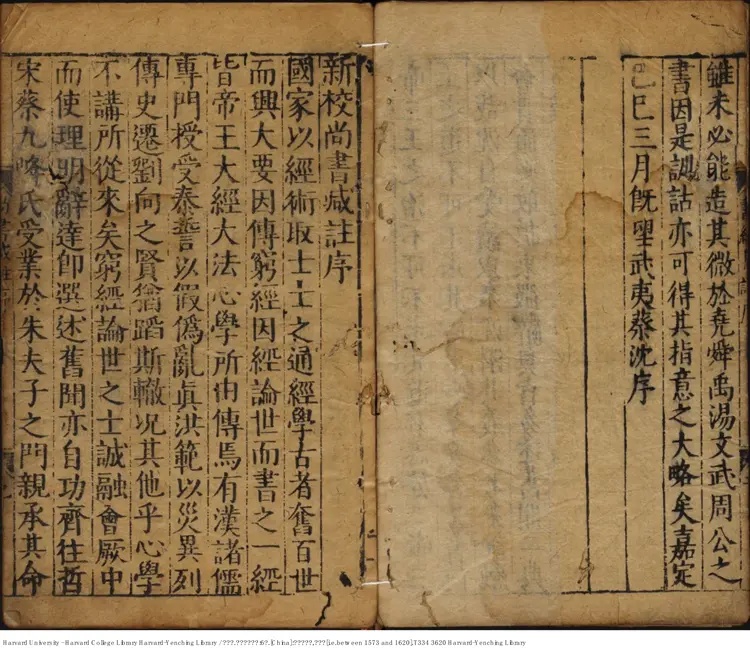 雖未必能造其微於堯舜禹湯文武周公之
書因是訓詁亦可得其指意之大略矣嘉定
己巳三月既望武夷蔡沈序
新校尚書蔵註序
國家以經術取士士之通經學古者奮百世
而興大要因傳窮經因經論世而書之一經
皆帝王大經大法心學所由傳焉有漢諸儒
專門授受泰誓以假偽亂眞洪範以災異列
傳史遷劉向之賢猶蹈斯轍况其他乎心學
不講所從來矣窮經論世之士誠融會厥中
而使理明辭達卽選述舊聞亦自功齊往哲
宋蔡九峰氏受業於朱夫子之門親承其命
Harvard University - Harvard College Library Harvard-Yenching Library / ???.??????:6?.[China]:?????,???[i.e.between 1573 and 1620],T334 3620 Harvard-Yenching Library